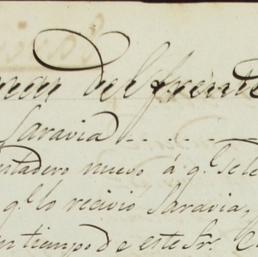 del frente
Saravia
nuevo á q.e se le
q.e lo recivio Saravia,
tiempo de este Sr.